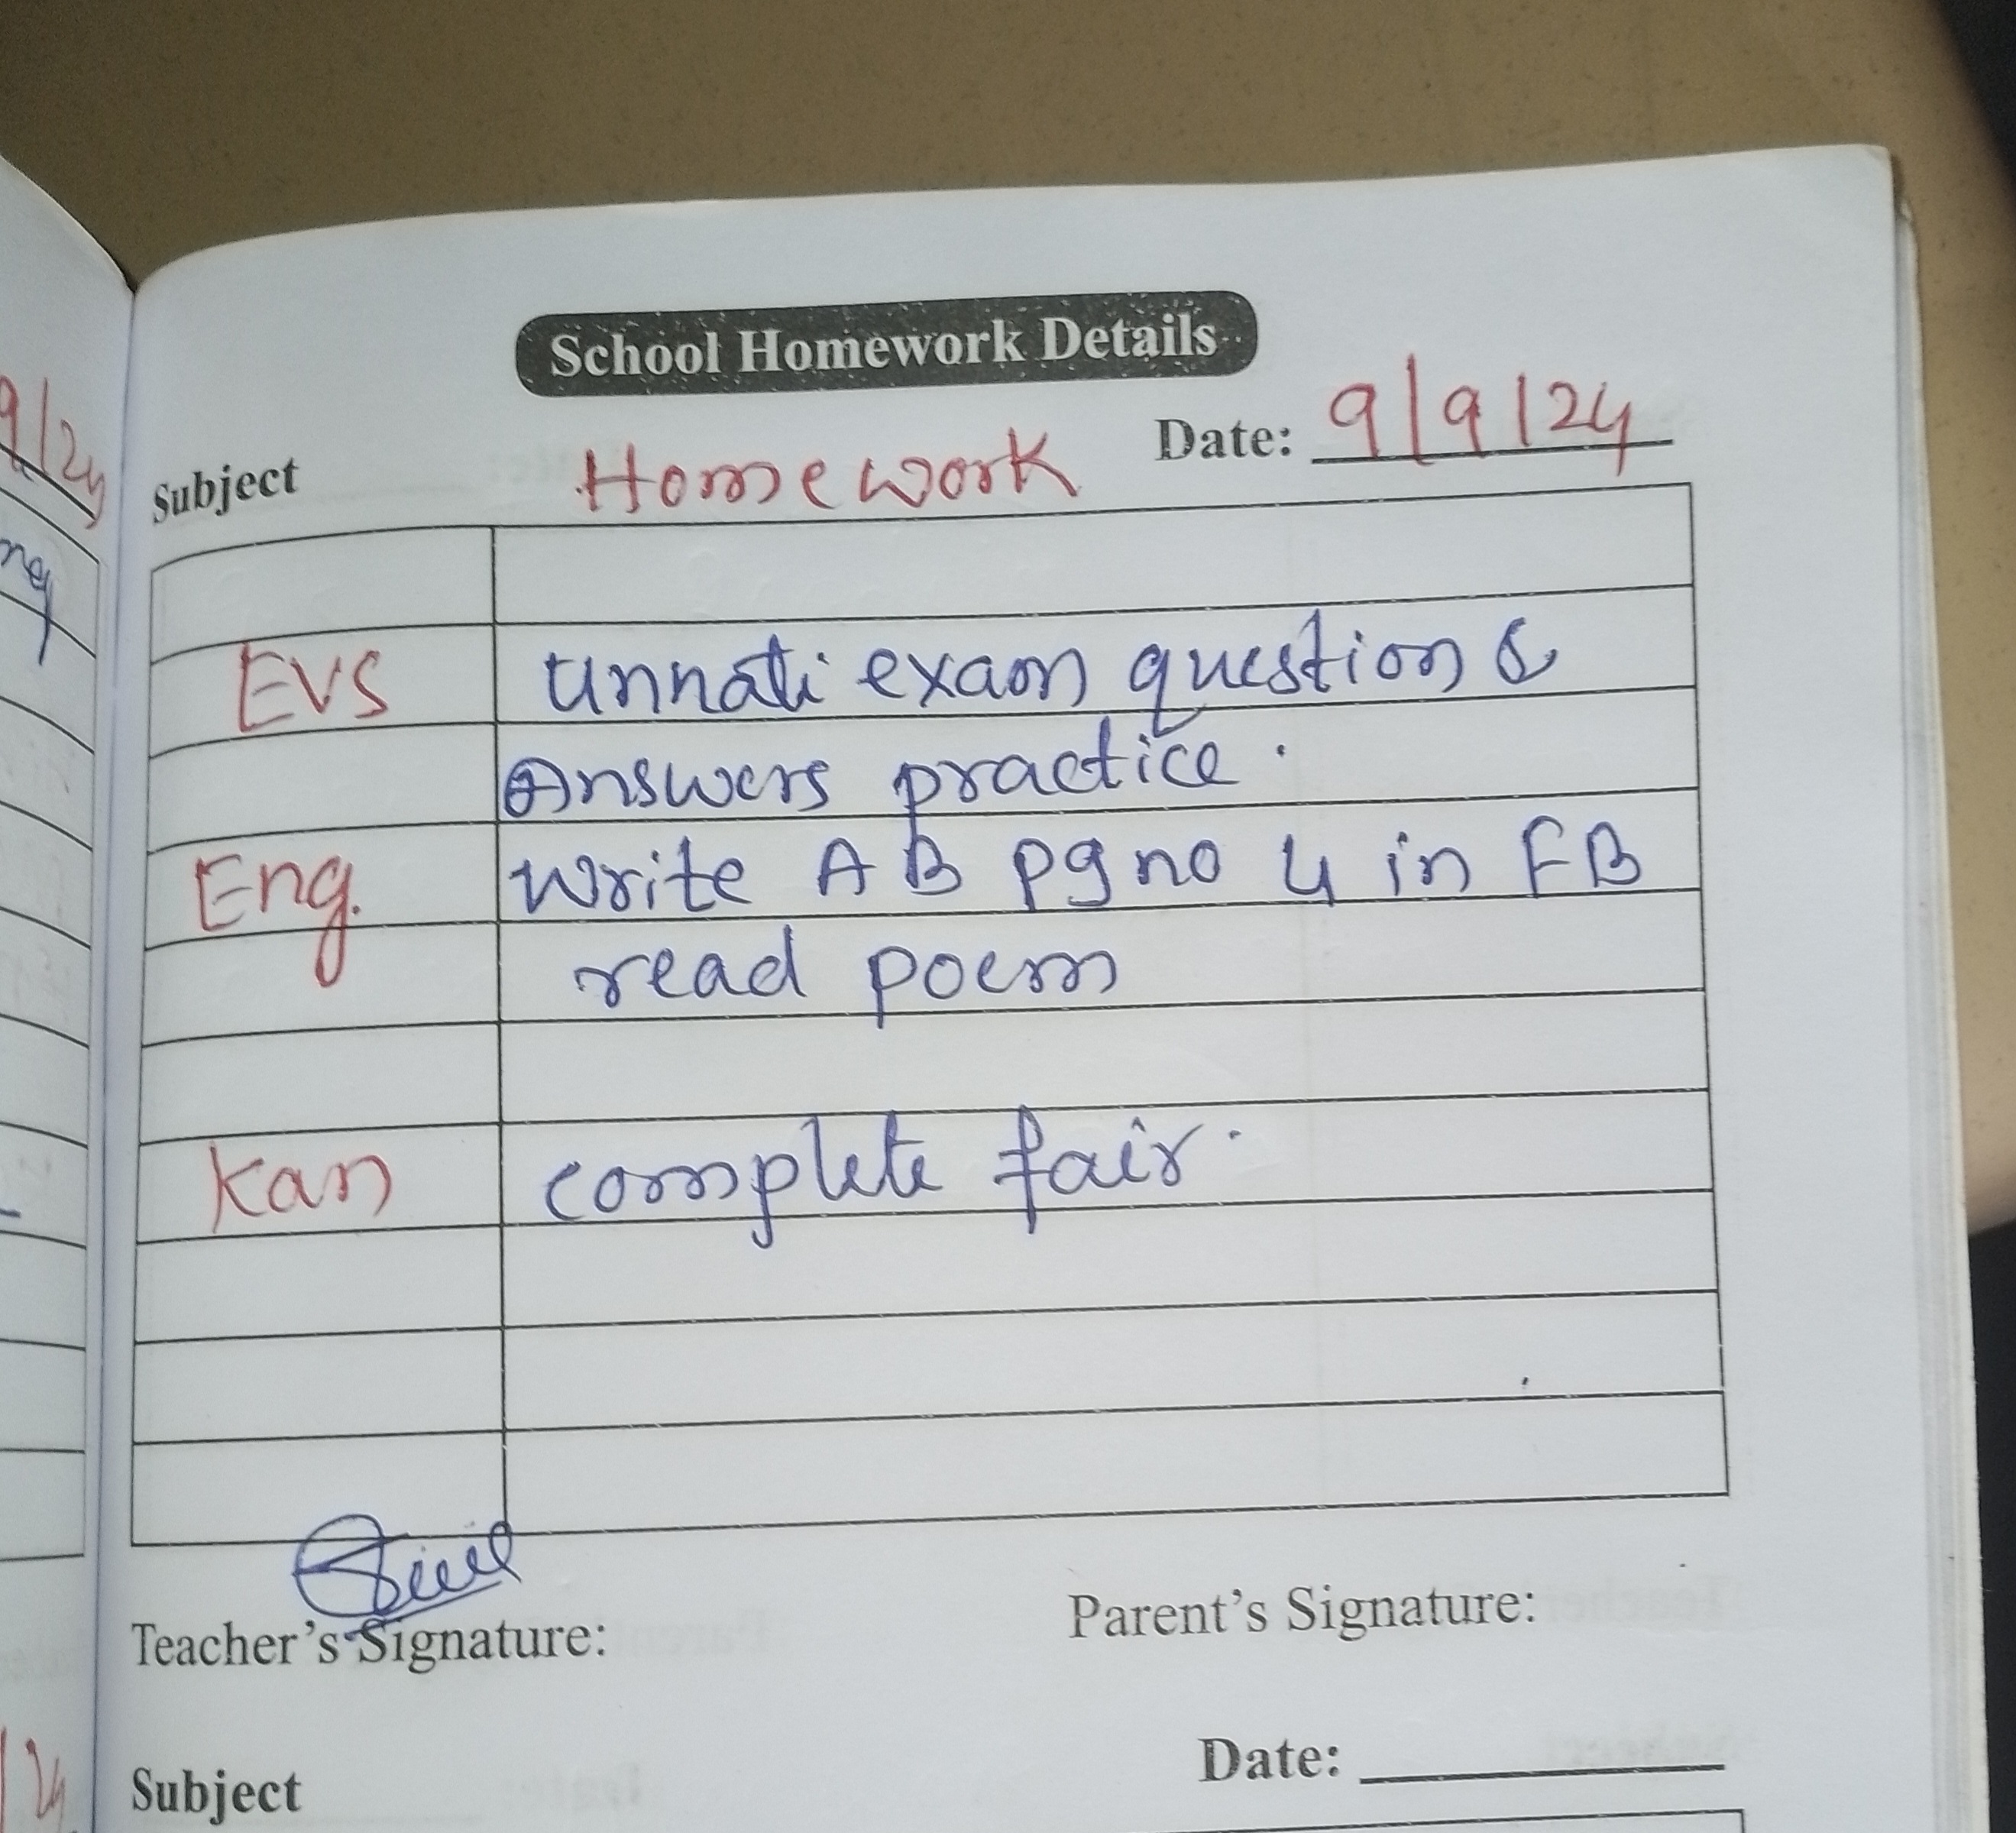 School Homework Details
Subject Homework Date: 9/9/24
EVS unnati exam question &
Answers practice.
Eng. Write A B pg no 4 in FB
read poem
Kan complete fair.
Teacher's Signature: Parent's Signature:
Subject Date: